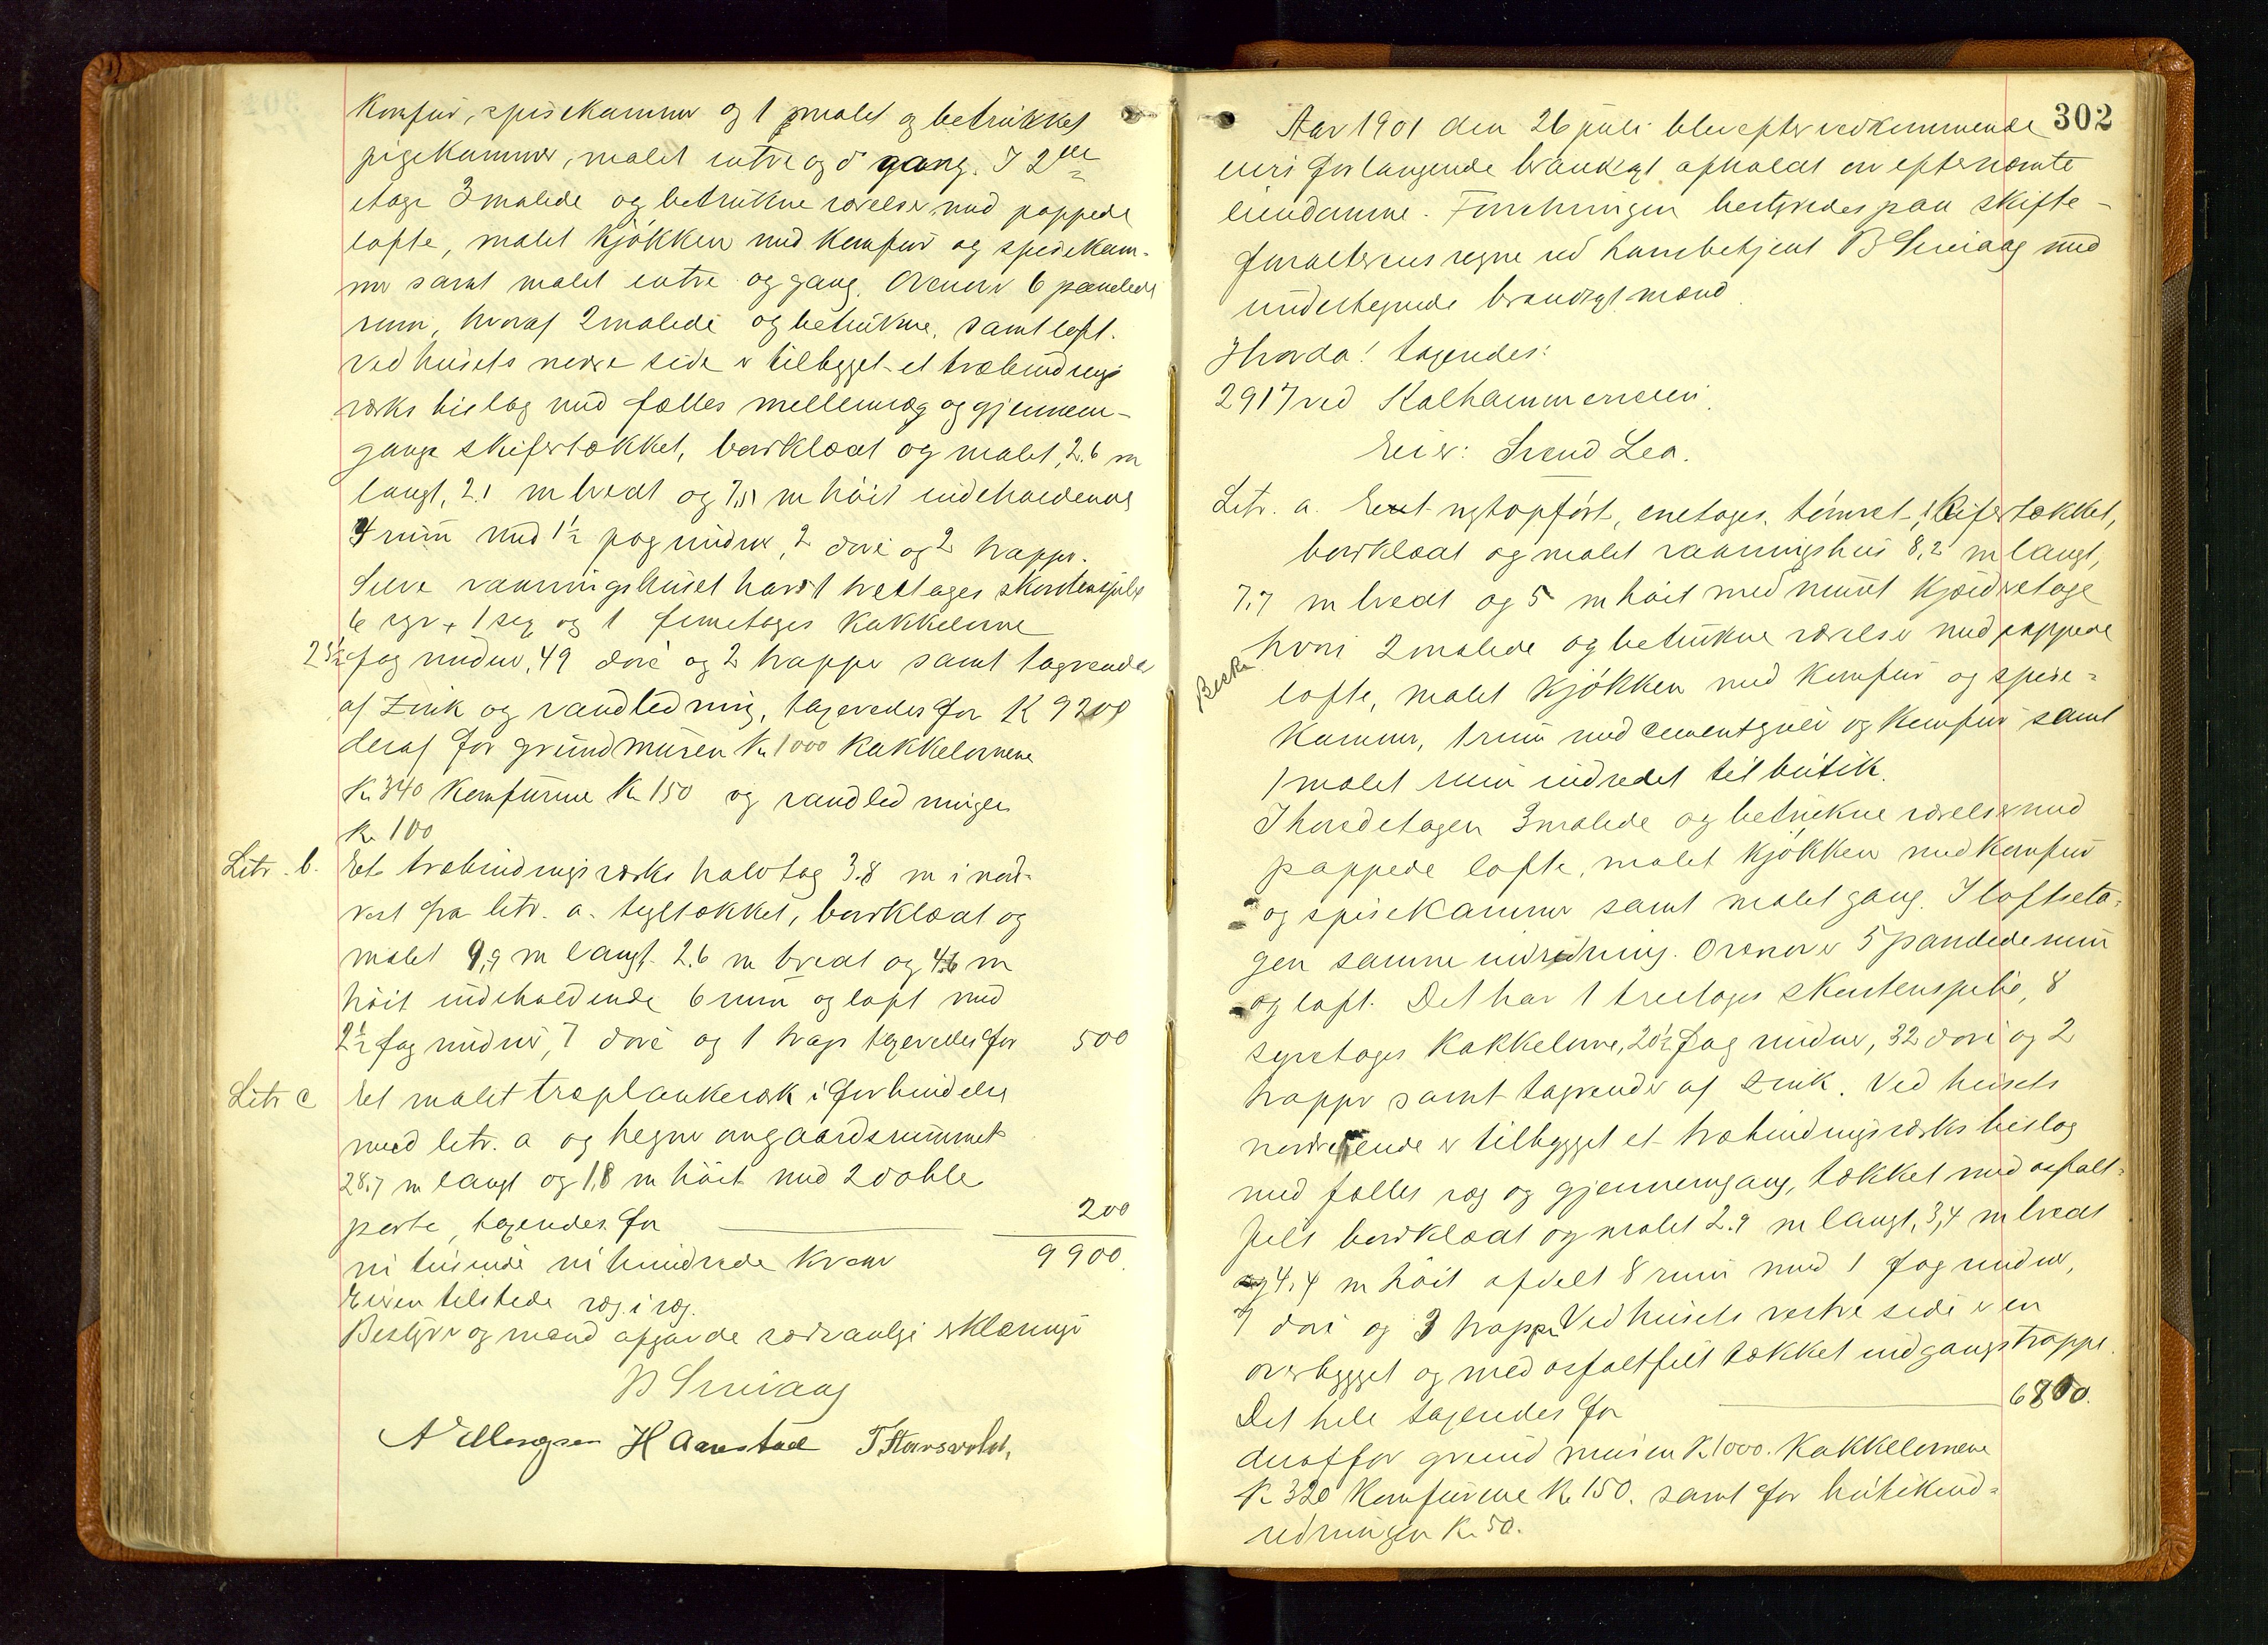 Komfur, spisekammer og 1 malet og betrukket
pigekammer, malet entre og gang. I 2den
etage 3 malede og betrukne værelser med pappede
lofte, malet kjøkken med komfur og spisekam-
mer samt malet entre og gang. Ovenover 6 panelede
rum, hvoraf 2 malede og betrukne, samt loft.
Ved husets nordre side er tilbygget et træbindings
værks bislag med fælles mellemvæg og gjennem-
gange skifertækket, bordklædt og malet, 2.6 m
langt, 2.1 m bredt og 7,51 m höit indeholdende
4 rum med 1½ fag vinduer, 2 döre og 2 trapper.
Selve vaaningshuset har 1 tretages skorstenspibe
6 syv + 1 sex og 1 femetages kakkelovne
25½ fag vinduer, 49 döre og 2 trapper samt tagrender
af zink og vandledning, taxeredes for K 9200
deraf for grundmuren Kr 1000 kakkelovnene
Kr 340 Komfurene Kr 150 og vandledningen
Kr. 100
Litr. b. Et træbindingsværks halvtag 3.8 m i nord-
vest fra litr. a. tegltækket, bordklædt og
malet 9,9 m langt 2.6 m bredt og 4.6 m
höit indeholdende 6 rum og loft med
2½ fag vinduer, 7 döre og 1 trap taxeredes for 500
Litr c Et malet træplankeværk i forbindelse
med litr. a og hegner om gaardsrummet
28.7 m langt og 1,8 m höit med 2 doble
porte, taxeredes for 200
ni tusinde ni hundrede kroner 9900.
Eieren tilstede væg i væg.
Bestyrer og mænd afgav de sædvanlige erklæringer
B Sneiaag
A Ellingsen H Aanestad T Hansvold.
302
Aar 1901 den 26 juli blev efter vedkommende
eiers forlangende branttaxt afholdt over efternævnte
eiendomme. Forretningen bestyredes paa skifte-
forvalterens vegne ved hans betjent B Sneiaag med
undertegnede brandtaxtmænd.
Hvorda! taxeredes:
2917 ved Kalhammerveien.
Eier: Svend Lea.
Litr. a. Et nytopfört, enetages, tömret, skifertækket,
bordklædt og malet vaaningshus 8,2 m langt,
7.7 m bredt og 5 m höit med muret kjælderetage
hvori 2 malede og betrukne værelser med pappede
lofte, malet kjøkken med komfur og spise-
kammer, 1 rum med cementgulv og komfur samt
1 malet rum indredet til butik.
I hovedetagen 3 malede og betrukne værelser med
pappede lofte, malet kjøkken med komfur
og spisekammer samt malet gang. I loftseta-
gen samme indredning. Ovenover 5 panelede rum
og loft. Det har 1 tretages skorstenspibe, 8
syvetages kakkelovne, 20½ fag vinduer, 32 döre og 2
trapper samt tagrender af zink. Ved husets
nordre ende er tilbygget et træbindingsværks bislag
med fælles væg og gjennemgang, tækket med asfalt-
filt bordklædt og malet 2.9 m langt, 3,4 m bredt
og 4,4 m höit afdelt 8 rum med 1 fag vinduer,
7 döre og 3 trapper Ved husets vestre side er en
overbygget og med asfaltfilt tækket indgangstrappe.
Det hele taxeredes for 6800.
deraf for grundmuren K 1000. Kakkelovnene
Kr 320 Komfurene Kr 150. samt for butikind-
redningen Kr. 50.